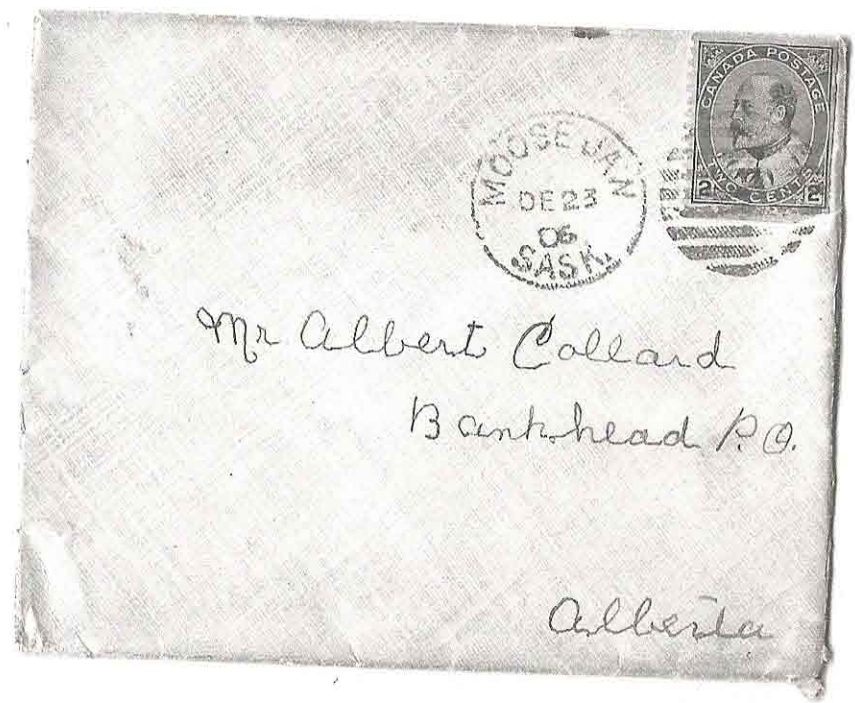 CANADA POSTAGE
2 TWO CENTS 2
MOOSE JAW
DE 23
06
SASK.
Mr Albert Collard
Bankhead P.O.
Alberta